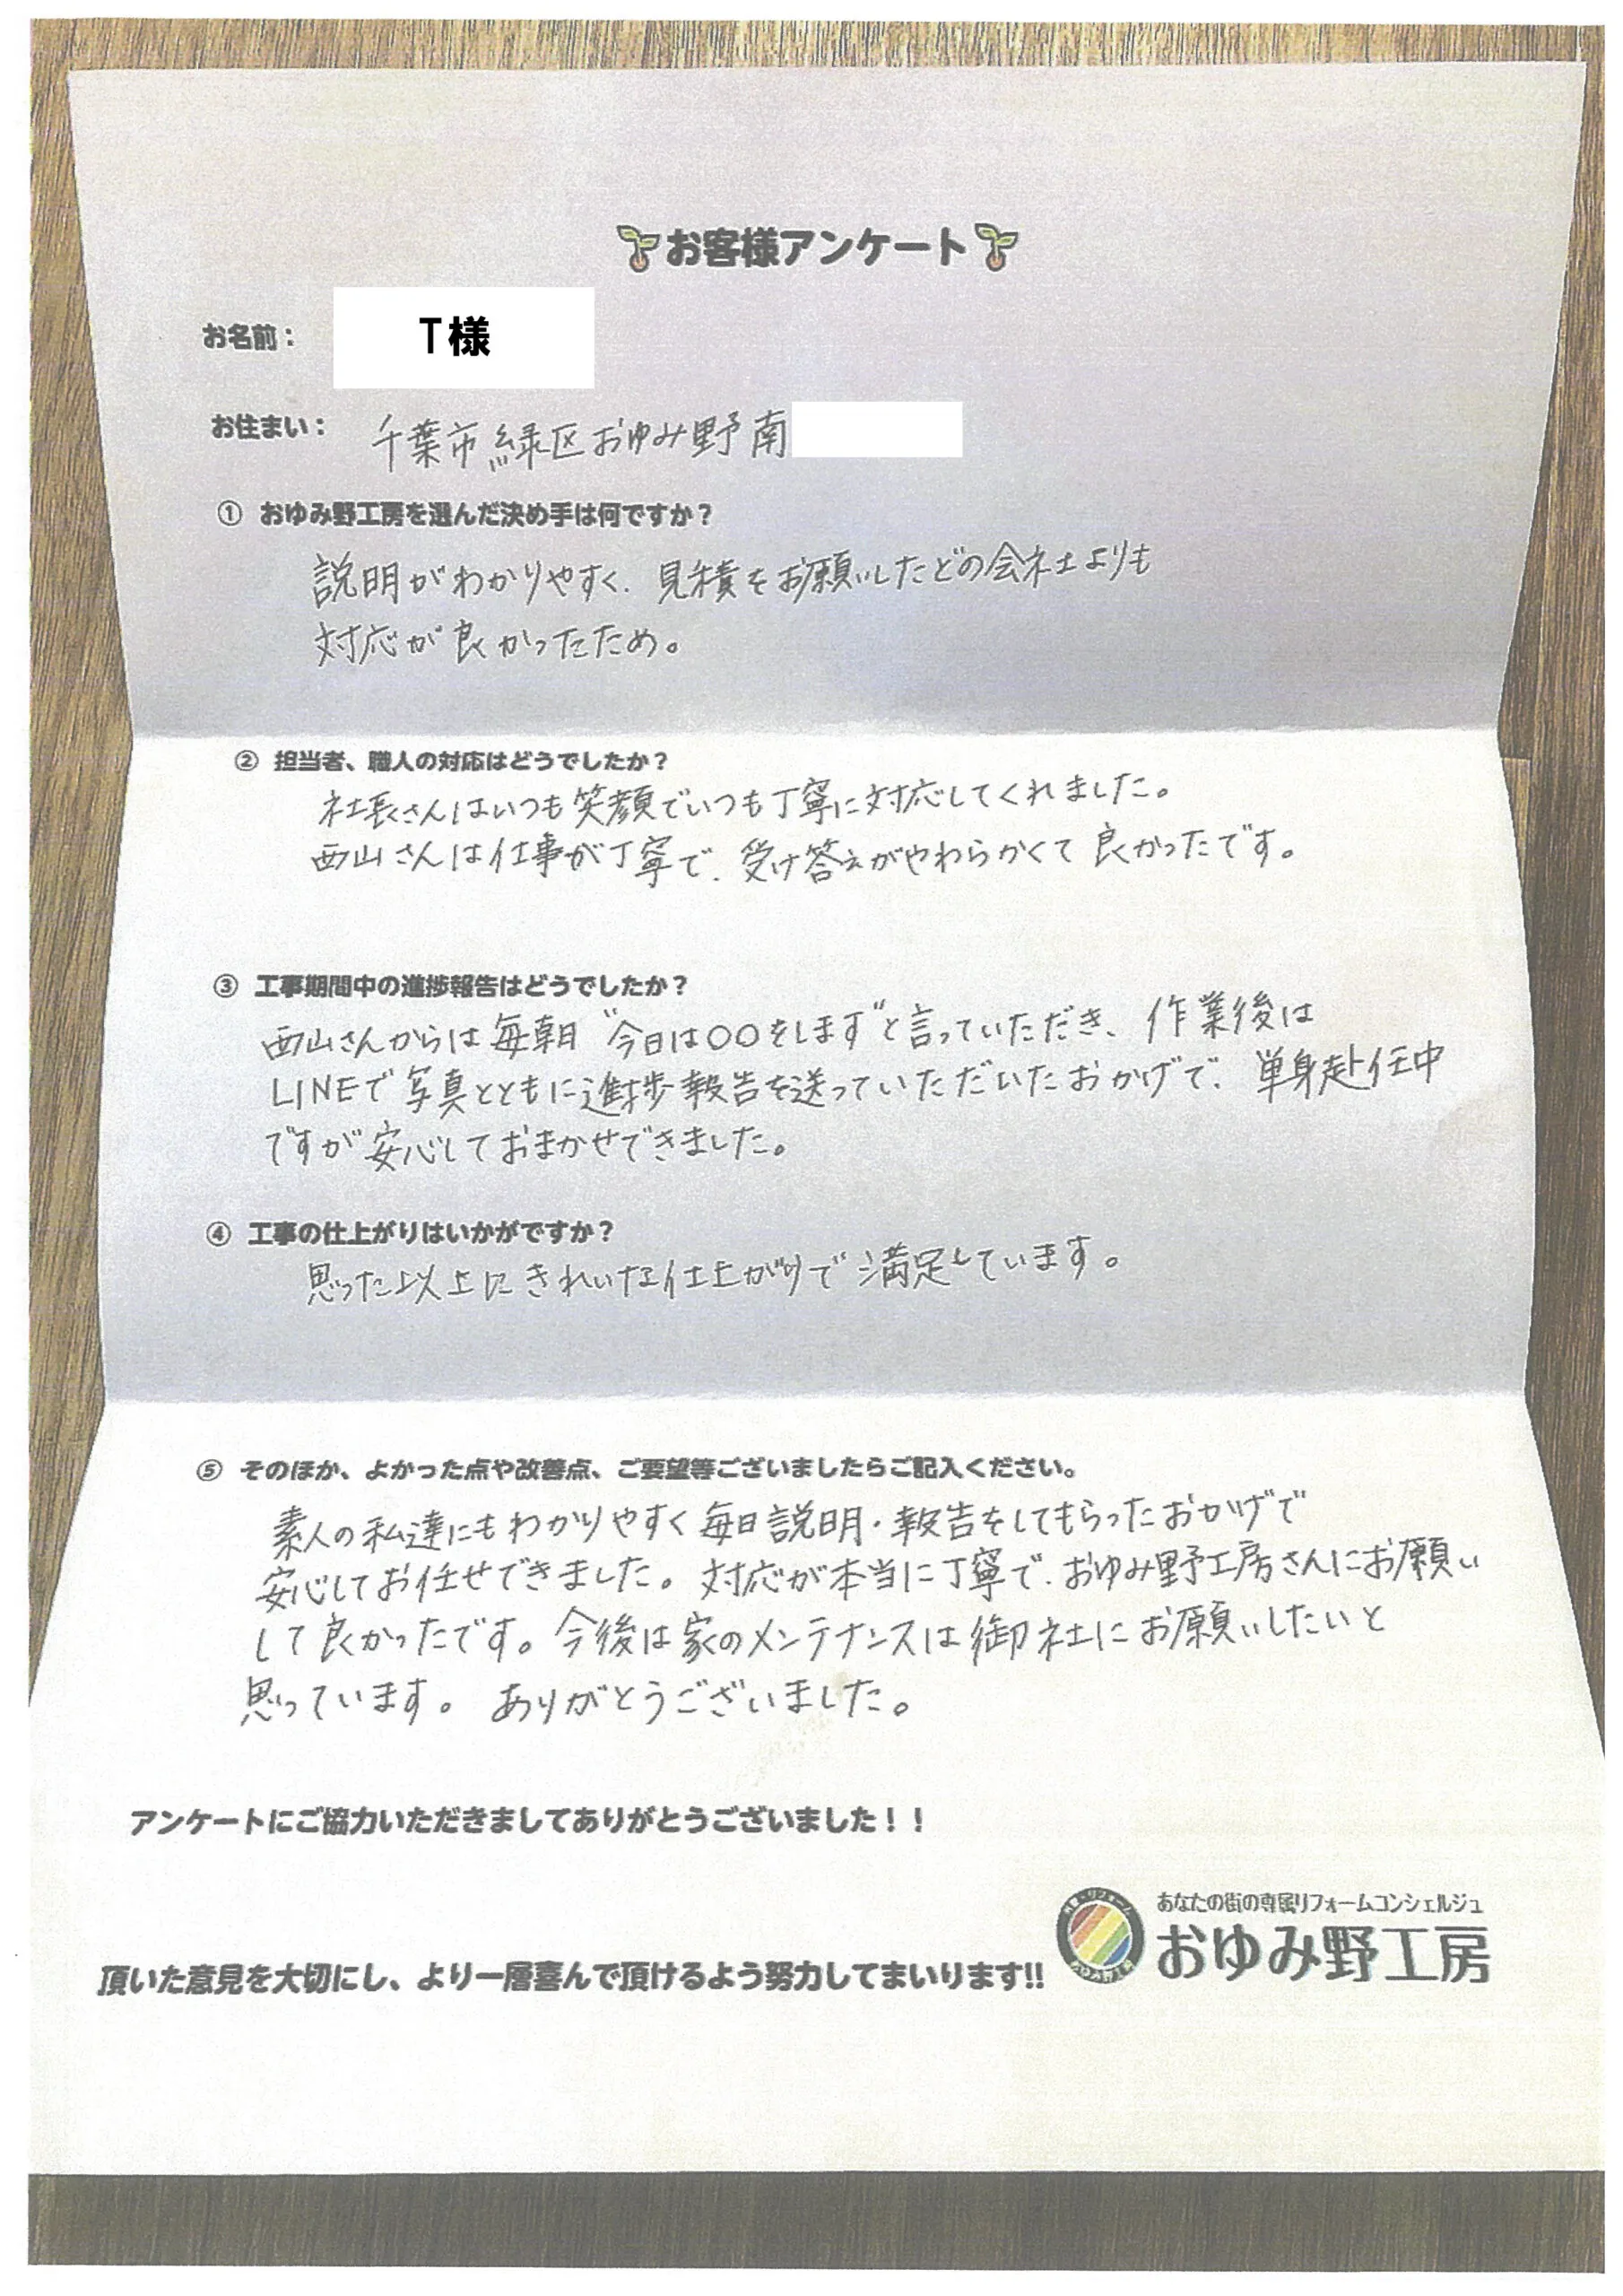 お客様アンケート
お名前：
T様
お住まい：
千葉市緑区おゆみ野南
① おゆみ野工房を選んだ決め手は何ですか？
説明がわかりやすく、見積をお願いしたどの会社よりも
対応が良かったため。
② 担当者、職人の対応はどうでしたか？
社長さんはいつも笑顔でいつも丁寧に対応してくれました。
西山さんは仕事が丁寧で、受け答えがやわらかくて良かったです。
③ 工事期間中の進捗報告はどうでしたか？
西山さんからは毎朝“今日は〇〇をします”と言っていただき、作業後は
LINEで写真とともに進捗報告を送っていただいたおかげで、単身赴任中
ですが安心しておまかせできました。
④ 工事の仕上がりはいかがですか？
思った以上にきれいな仕上がりで満足しています。
⑤ そのほか、よかった点や改善点、ご要望等ございましたらご記入ください。
素人の私達にもわかりやすく毎日説明・報告をしてもらったおかげで
安心してお任せできました。対応が本当に丁寧で、おゆみ野工房さんにお願い
して良かったです。今後は家のメンテナンスは御社にお願いしたいと
思っています。ありがとうございました。
アンケートにご協力いただきましてありがとうございました！！
あなたの街の専属リフォームコンシェルジュ
おゆみ野工房
頂いた意見を大切にし、より一層喜んで頂けるよう努力してまいります!!